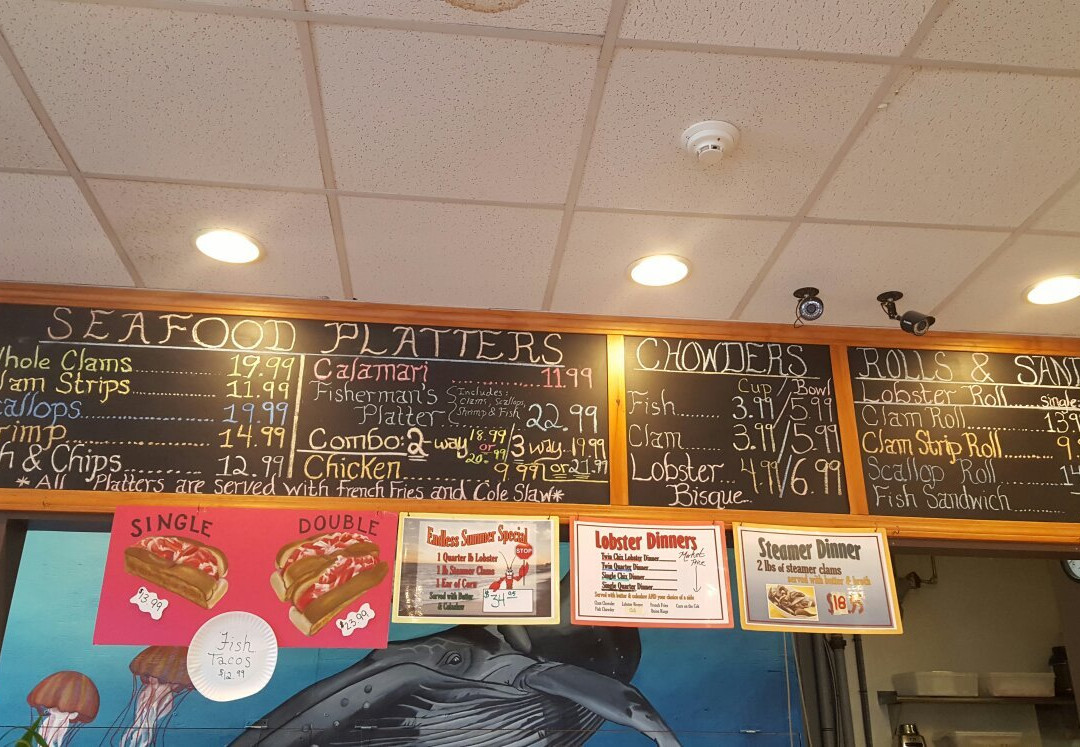 SEAFOOD PLATTERS
Whole Clams 19.99
Clam Strips 11.99
Scallops 19.99
Shrimp 14.99
Fish & Chips 12.99
Calamari 11.99
Fisherman's Platter Includes: Clams, Scallops, Shrimp & Fish 22.99
Combo: 2 way 18.99 or 20.99 / 3 way 19.99 or 21.99
Chicken 9.99
*All Platters are served with French Fries and Cole Slaw*
CHOWDERS
Cup / Bowl
Fish 3.99 / 5.99
Clam 3.99 / 5.99
Lobster Bisque 4.99 / 6.99
ROLLS & SAND
Lobster Roll single
Clam Roll 13.9
Clam Strip Roll 9.
Scallop Roll 14
Fish Sandwich
SINGLE
$13.99
DOUBLE
$23.99
Fish
Tacos
$12.99
Endless Summer Special
1 Quarter lb Lobster
1 lb Steamer Clams
1 Ear of Corn
Served with Butter
& Coleslaw
STOP
$34.95
Lobster Dinners
Twin Chix Lobster Dinner
Twin Quarter Dinner
Single Chix Dinner
Single Quarter Dinner
Market Price
Served with butter & coleslaw AND your choice of a side
Clam Chowder
Fish Chowder
French Fries
Onion Rings
Corn on the Cob
Steamer Dinner
2 lbs of steamer clams
served with butter & broth
$18.95